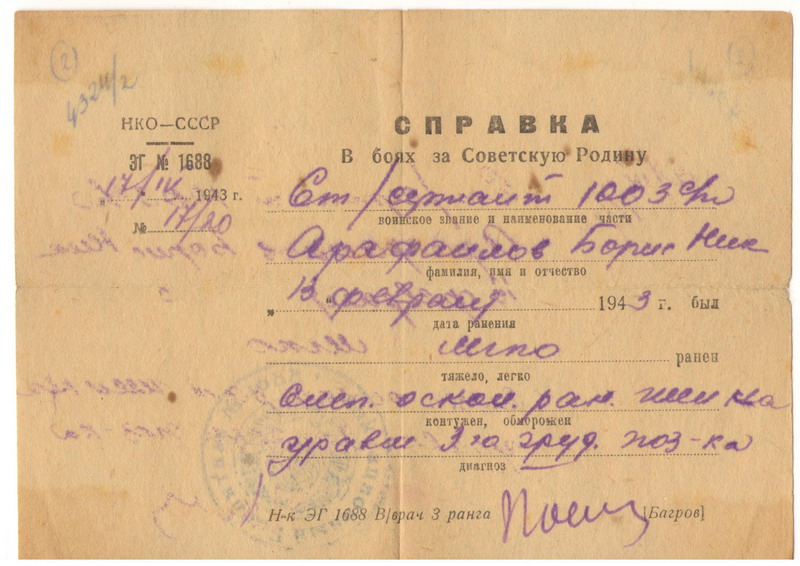 (2)
4324/2
НКО—СССР
ЭГ № 1688
„17/IV 1943 г.
№ 17/20
СПРАВКА
В боях за Советскую Родину
Ст/сержант 1003 сп
воинское звание и наименование части
Арафаилов Борис Ник
фамилия, имя и отчество
„13" февраля 1943 г. был
дата ранения
легко ранен
тяжело, легко
Слеп. оскол. ран.
контужен, обморожен
груд. поз-ка
диагноз
Н-к ЭГ 1688 В/врач 3 ранга [Багров]